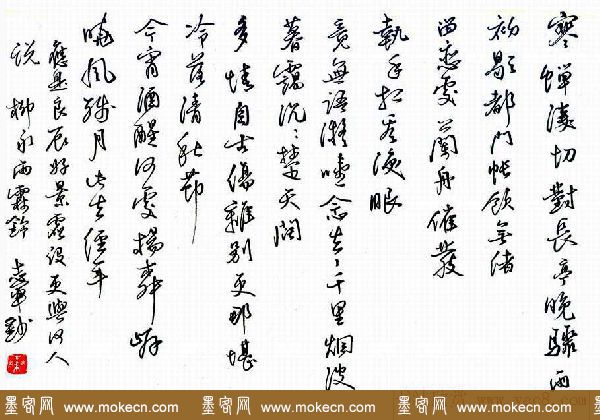 寒蟬淒切對長亭晚驟雨
初歇都門帳飲無緒
留恋處蘭舟催發
執手相看淚眼
竟無語凝噎念去々千里烟波
暮靄沉々楚天闊
多情自古傷離別更那堪
冷落清秋節
今宵酒醒何處楊柳岸
曉風殘月此去經年
應是良辰好景虛設更與何人
説 柳永雨霖鈴
墨客网 www.mokecn.com 墨客网 www.mokecn.com 墨客网 www.mokecn.com 墨客网 www.mokecn.com